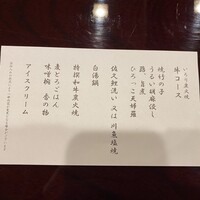 いろり炭火焼
牛コース
焼竹の子
うるい胡麻浸し
鶏 旨煮
ひろっこ天婦羅
佐久鯉洗い 又は 川魚塩焼
白湯鍋
特撰和牛炭火焼
麦とろごはん
味噌椀 香の物
アイスクリーム